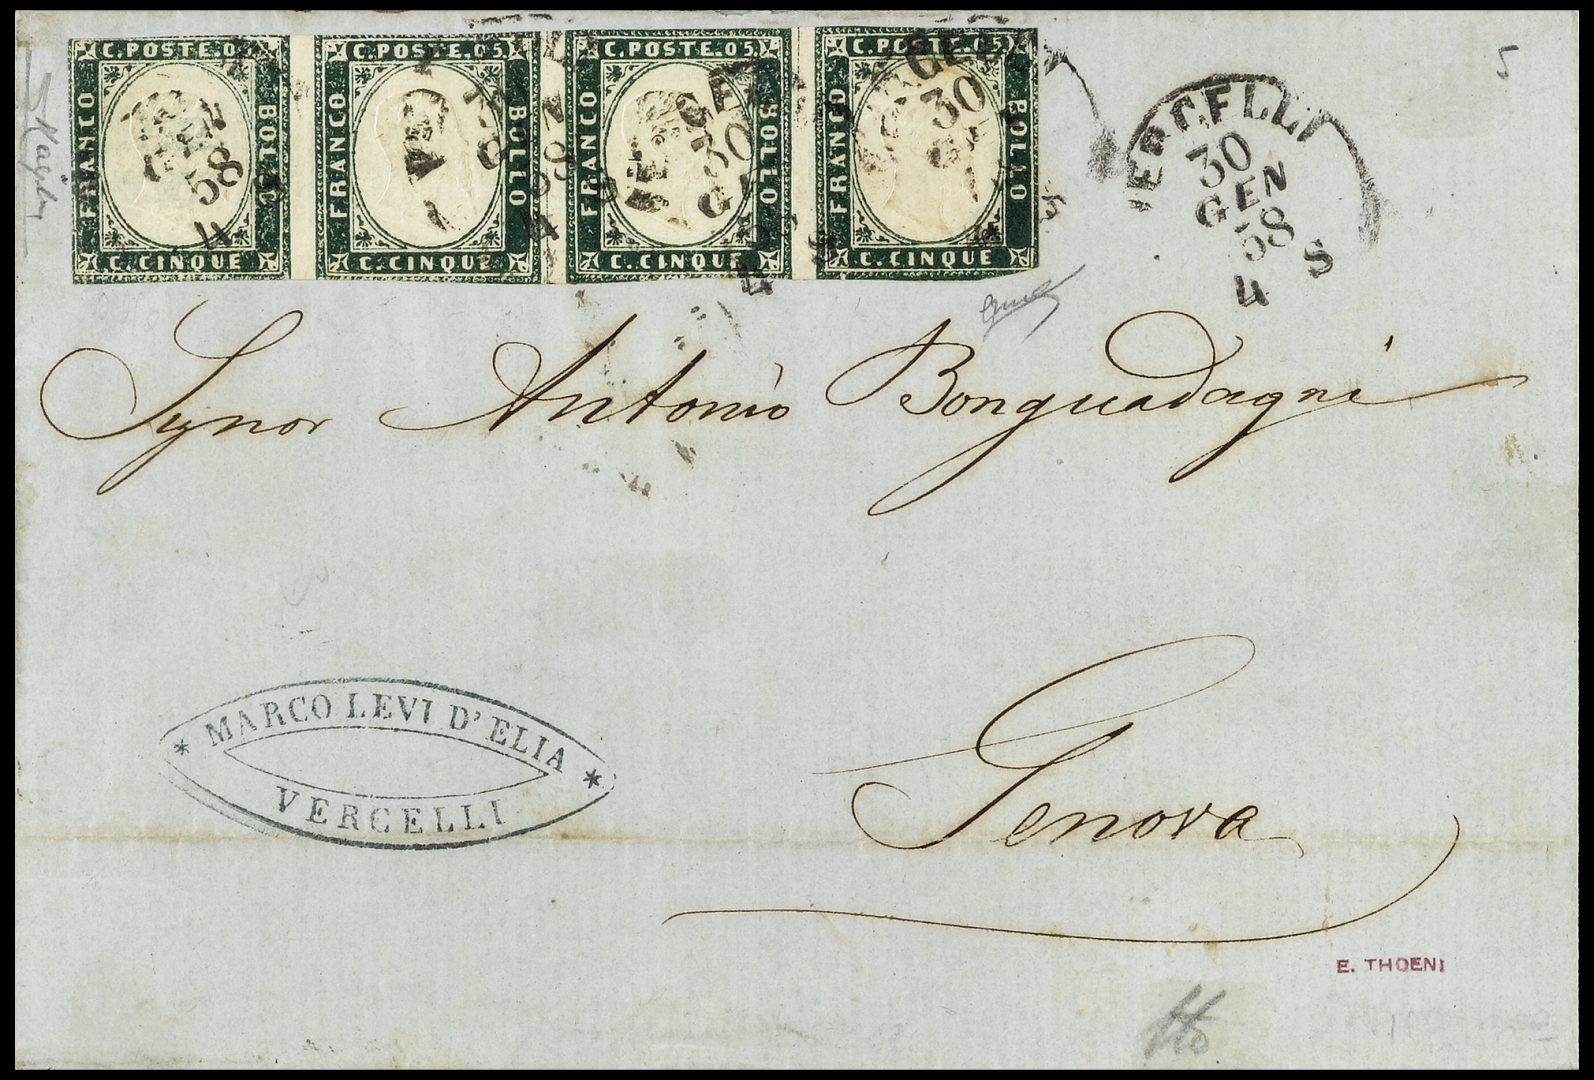 C. POSTE. 05 C. POSTE. 05 C. POSTE. 05 C. POSTE. 05
FRANCO BOLLO FRANCO BOLLO FRANCO BOLLO FRANCO BOLLO
C. CINQUE C. CINQUE C. CINQUE C. CINQUE
GEN
58
4
30
30
VERCELLI
30
GEN
58
4 S
5
Sygnor Antonio Bonguadagni
* MARCO LEVI D'ELIA *
VERCELLI
Genova
E. THOENI